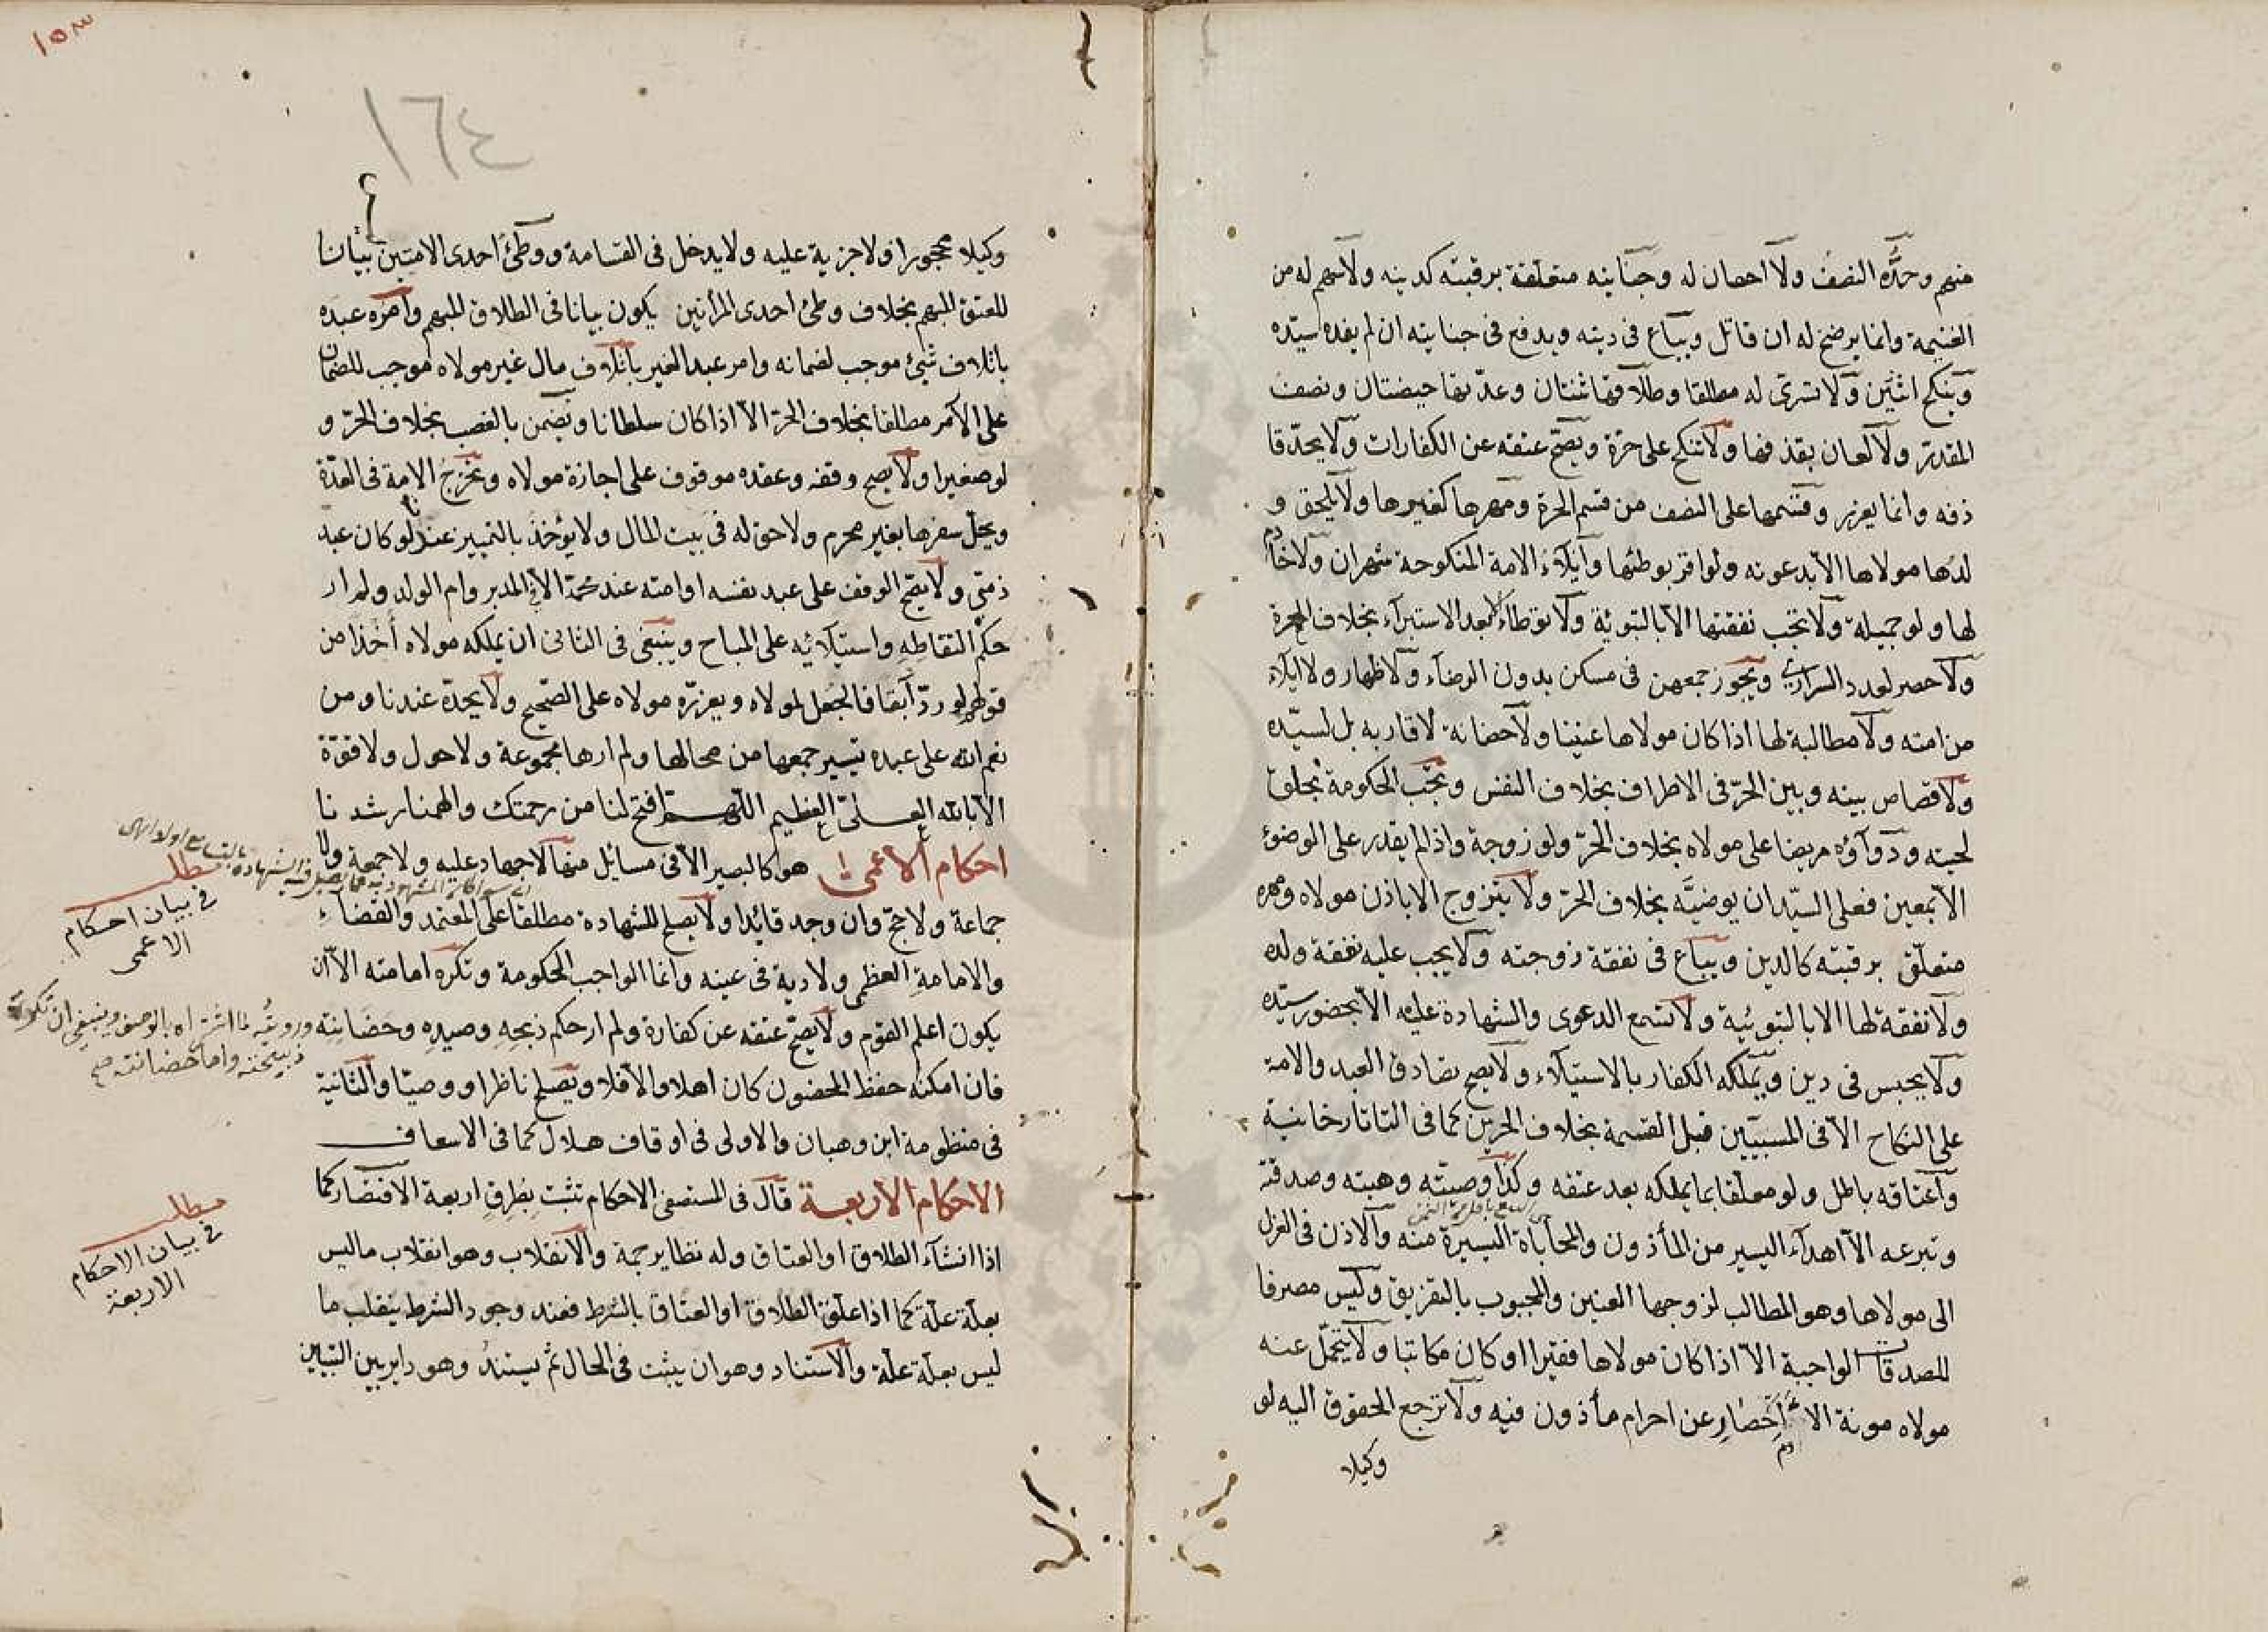 منهم وحدّه النصف ولا احصان له وجنايته متعلقة برقبته كدينه ولا سهم له من
الغنيمة وانما يرضخ له ان قاتل ويباع في دينه ويدفع في جنايته ان لم يفده سيّده
وينكح اثنتين ولا تسرّى له مطلقا وطلاقها ثنتان وعدتها حيضتان ونصف
المقدر ولا لعان بقذفها ولا تنكح على حرّة ويصحّ عتقه عن الكفارات ولا يحدّ قا
ذفه وانما يعزر وقسمها على النصف من قسم الحرة ومهرها كغيرها ولا يلحق و
لدها مولاها الا بدعوته ولو اقر بوطئها وايلاء الامة المنكوحة شهران ولا خادم
لها ولو جميلة ولا تجب نفقتها الا بالتبوئة ولا توطأ الا بعد الاستبراء بخلاف الحرة
ولا حصر لعدد السراري ويجوز جمعهن في مسكن بدون الرضاء ولا ظهار ولا ايلاء
من امته ولا مطالبة لها اذا كان مولاها عنينا ولا حضانة لاقاربه بل لسيّده
ولا قصاص بينه وبين الحرّ في الاطراف بخلاف النفس وتجب الحكومة بحلق
لحيته ودوآؤه مريضا على مولاه بخلاف الحرّ ولو زوجة واذا لم يقدر على الوضوء
الا بمعين فعلى السيّد ان يوضيّه بخلاف الحرّ ولا يتزوج الا باذن مولاه ومهره
متعلّق برقبته كالدين ويباع في نفقة زوجته ولا يجب عليه نفقة ولده
ولا نفقة لها الا بالتبوئية ولا تسمع الدعوى والشهادة عليه الا بحضور سيّده
ولا يحبس في دين ويملكه الكفار بالاستيلاء ولا يصح تصادق العبد والامة
على النكاح الا في المسبيّين قبل القسمة بخلاف الحرّين كما في التاتارخانية
واعتاقه باطل ولو معلقا بما يملكه بعد عتقه وكذا وصيته وهبته وصدقته
وتبرعه الا اهدآء اليسير من المأذون والمحاباة اليسيرة منه والاذن في العزل
الى مولاها وهو المطالب لزوجها العنين والمجبوب بالتفريق وليس مصرفا
للصدقات الواجبة الا اذا كان مولاها فقيرا او كان مكاتبا ولا يتحمّل عنه
مولاه مونة الا احصار عن احرام مأذون فيه ولا ترجع الحقوق اليه لو
وكيلا
١٥٣
١٦٤
وكيلا محجورا ولا جزية عليه ولا يدخل في القسامة ووطئ احدى الامتين بيانا
للعتق المبهم بخلاف وطئ احدى المرأتين يكون بيانا في الطلاق المبهم وامره عبده
باتلاف شئ موجب لضمانه وامر عبد الغير باتلاف مال غير مولاه موجب للضمان
على الآمر مطلقا بخلاف الحرّ الا اذا كان سلطانا ويضمن بالغصب بخلاف الحرّ و
لو صغيرا ولا يصح وقفه وعقده موقوف على اجازة مولاه وتخرج الامة في العدّة
ويحل سفرها بغير محرم ولا حق له في بيت المال ولا يؤخذ بالتمييز عندنا لو كان عبد
ذمّي ولا يصح الوقف على عبد نفسه او امته عند محمد الا في المدبر وام الولد ولم ار
حكم التقاطه واستيلائه على المباح وينبغي في الثاني ان يملكه مولاه اخذا من
قولهم لو ردّ آبقا فالجعل لمولاه ويعزره مولاه على الصحيح ولا يحدّه عندنا ومن
نعم الله على عبده تيسير جمعها من محالها ولم ارها مجموعة ولا حول ولا قوّة
الا بالله العلىّ العظيم اللهم افتح لنا من رحمتك والهمنا رشدنا
احكام الاعمى هو كالبصير الا في مسائل منها لا جهاد عليه ولا جمعة ولا
جماعة ولا حج وان وجد قائدا ولا يصلح للشهادة مطلقا على المعتمد والقضاء
والامامة العظمى ولا دية في عينه وانما الواجب الحكومة وتكره امامته الا ان
يكون اعلم القوم ولا يصحّ عتقه عن كفارة ولم ار حكم ذبحه وصيده وحضانته ورويته لما اشتراه بالوصف وينبغي ان تكره
ذبيحته واما حضانته صح
فان امكنه حفظ المحضون كان اهلا والا فلا ويصلح ناظرا ووصيّا والثانية
في منظومة ابن وهبان والاولى في اوقاف هلال كما في الاسعاف
الاحكام الاربعة قال في المستصفى الاحكام تثبت بطرق اربعة الاقتصار كما
اذا انشاء الطلاق او العتاق وله نظاير جمة والانقلاب وهو انقلاب ما ليس
بعلّة علّة كما اذا علّق الطلاق او العتاق بالشرط فعند وجود الشرط ينقلب ما
ليس بعلّة علّة والاستناد وهو ان يثبت في الحال ثم يستند وهو داير بين التبيين
مطلب
في بيان احكام
الاعمى
مطلب
في بيان الاحكام
الاربعة